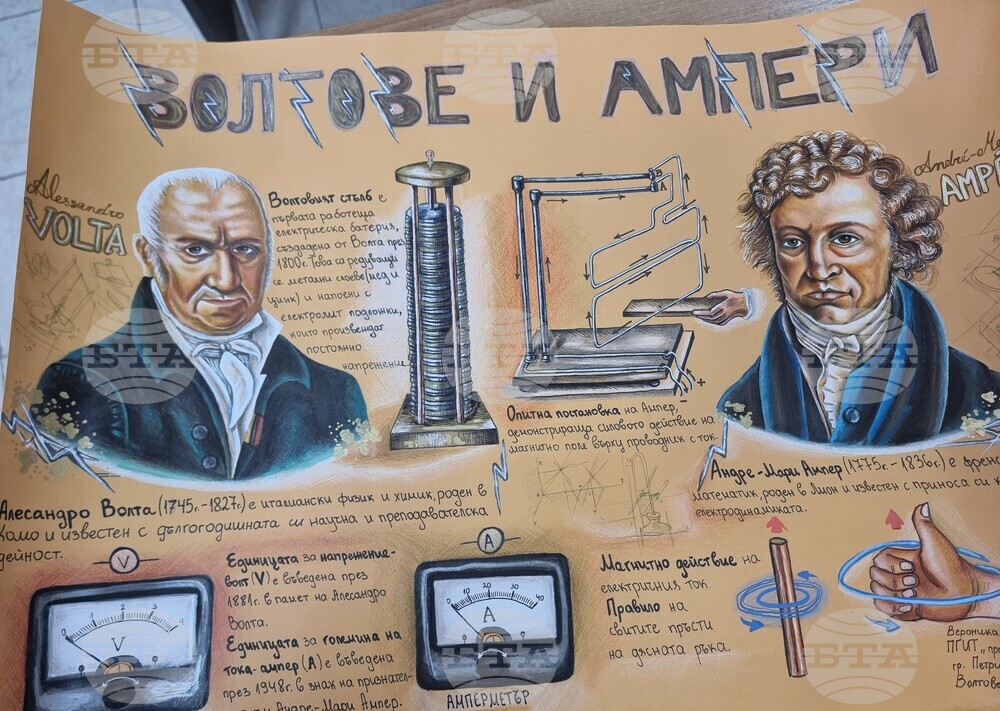 ВОЛТОВЕ И АМПЕРИ
Alessandro
VOLTA
Волтовият стълб е
първата работеща
електрическа батерия,
създадена от Волта през
1800г. Това са редуващи
се метални слоеве(мед и
цинк) и напоени с
електролит подложки,
които произвеждат
постоянно
напрежение.
André-M
AMP
Опитна постановка на Ампер,
демонстрираща силовото действие на
магнитно поле върху проводник с ток.
Алесандро Волта (1745г.-1827г.) е италиански физик и химик, роден в
Комо и известен с дългогодишната си научна и преподавателска
дейност.
Андре-Мари Ампер (1775г.-1836г.) е френс
математик, роден в Лион и известен с приноса си к
електродинамиката.
V
0 1 2 3 4
V
Единицата за напрежение-
волт (V) е въведена през
1881г. в памет на Алесандро
Волта.
Единицата за големина на
тока-ампер (А) е въведена
през 1948г. в знак на признател-
Андре-Мари Ампер.
A
0 10 20 30 40
A
АМПЕРМЕТЪР
Магнитно действие на
електричния ток.
Правило на
свитите пръсти
на дясната ръка.
Вероника
ПГИТ „пр
гр. Петри
Волтове
БТА